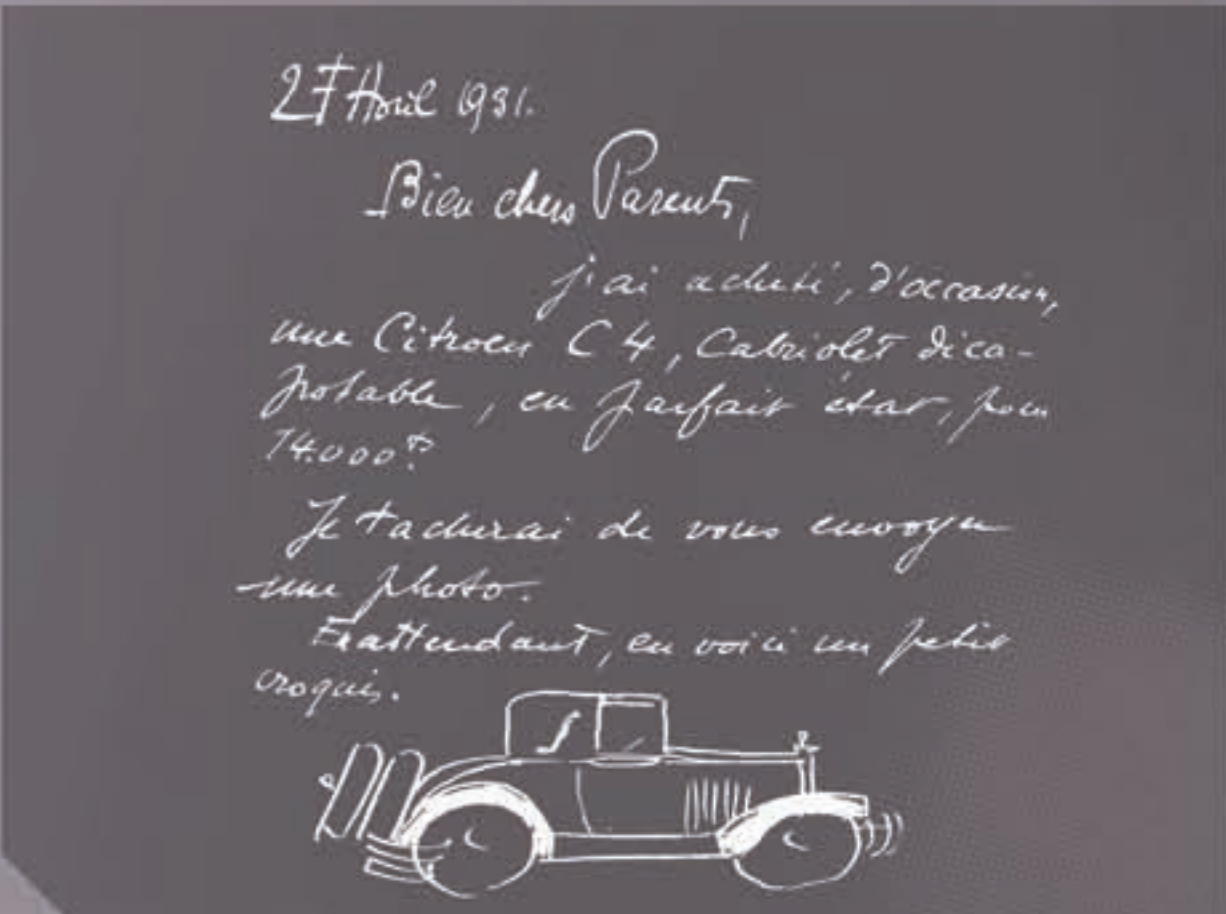 27 Avril 1931.
Bien chers Parents,
j'ai acheté, d'occasion,
une Citroen C4, Cabriolet déca-
potable, en parfait état, pour
14.000 Frs
Je tacherai de vous envoyer
une photo.
En attendant, en voici un petit
croquis.